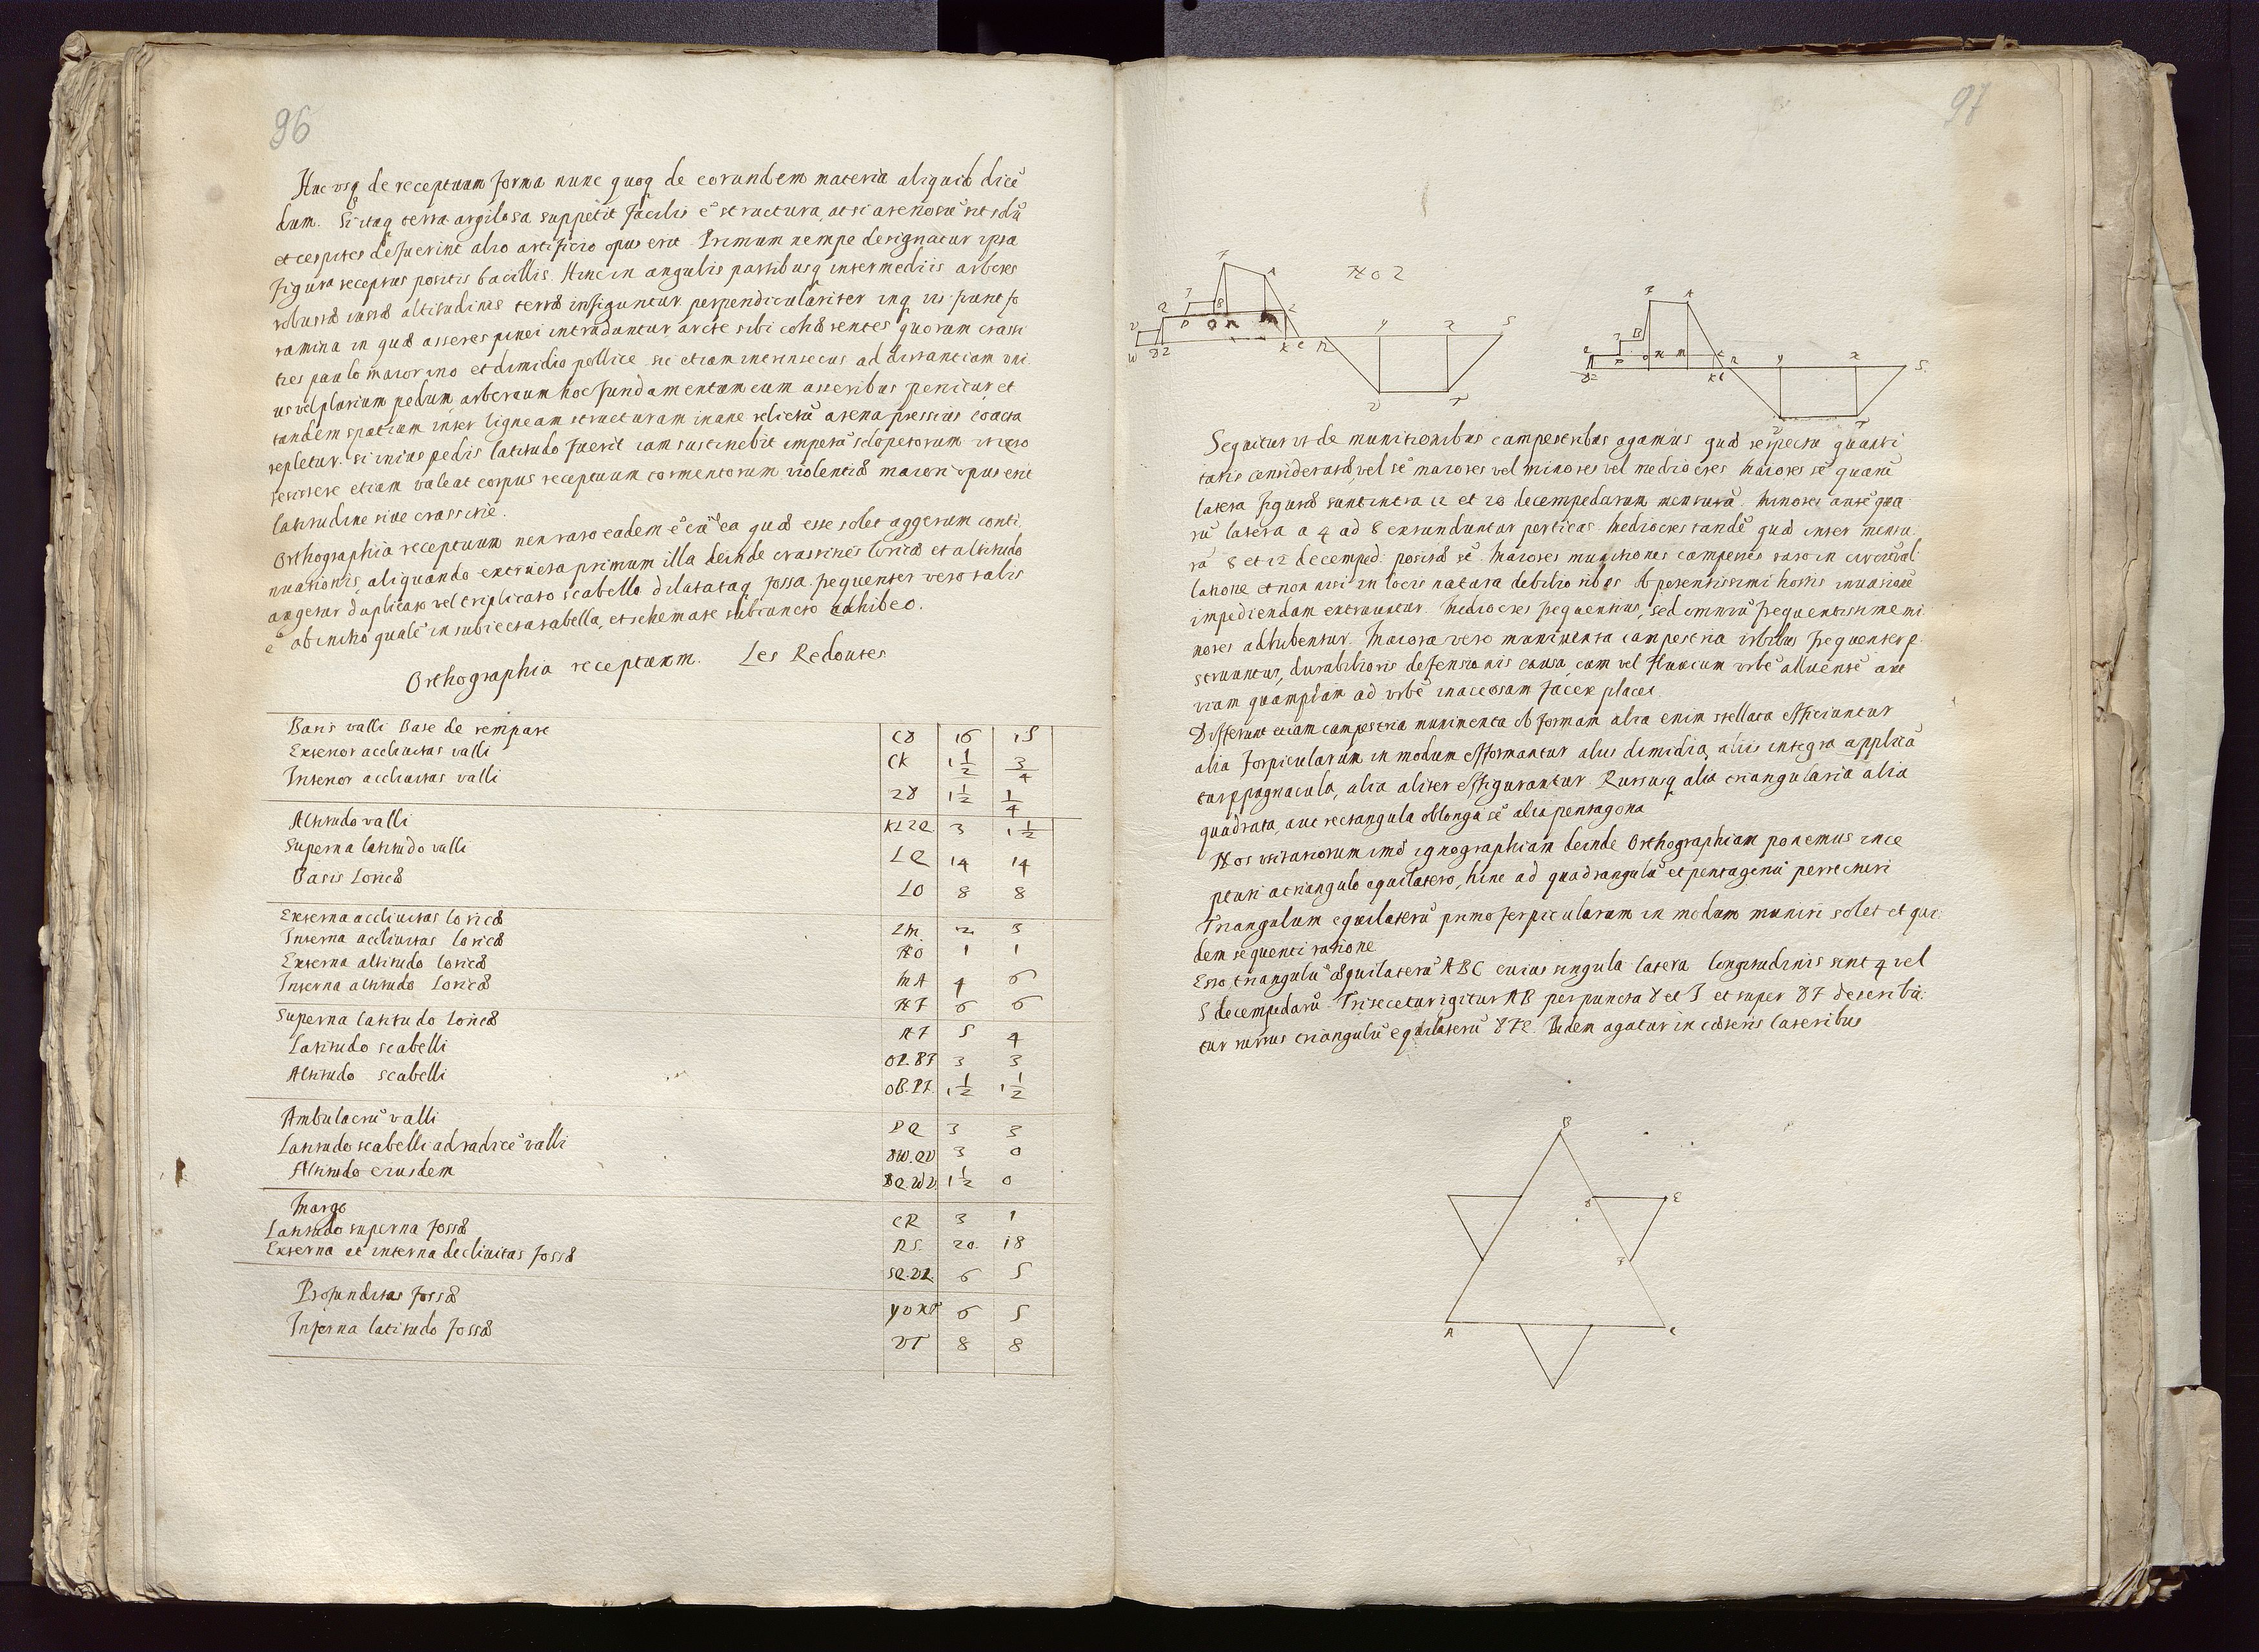 96
Huc usq de receptuum forma nunc quoq de eorundem materia aliquid dicē
dum. Si itaq terra argilosa suppetit facilis ē structura, at si arenosū sit solū
et cespites defuerint alio artificio opus erit. Primum nempe designatur ipsa
figura receptus positis bacillis. Hinc in angulis partibusq intermediis arbores
altitudinis terræ infiguntur perpendiculariter inq iis fiunt fo
ramina in quæ asseres pinei intraduntur arcte sibi cohærentes quorum crassi
ties paulo maior uno et dimidio pollice sic etiam intrinsecus ad distantiam uni
us vel plurium pedum arborum hoc fundamentum cum asseribus penitur, et
tandem spatium inter ligneam structuram inane relictū arena pressius coacta
repletur. Si unius pedis latitudo fuerit iam sustinebit impetū sclopetorum ut vero
resistere etiam valeat corpus receptuum tormentorum violentiæ maiori opus erit
latitudine sive crassitie.
Orthographia receptuum non raro eadem ē cū ea quæ esse solet aggerum conti
nuationis, aliquando extructa primum illa deinde crassities loricæ et altitudo
augetur duplicato vel triplicato scabello dilatataq fossa. frequenter vero talis
ē ab initio qualē in subiecta tabella, et schemate subiuncto adhibeo.
Orthographia receptuum. Les Redoutes
Basis valli Base de rempare C8 16 15
Exterior acclivitas valli CK 1 1/2 3/4
Interior acclivitas valli 28 1 1/2 1/4
Altitudo valli KL2Q 3 1 1/2
Superna latitudo valli LQ 14 14
Basis Loricæ LO 8 8
Externa acclivitas loricæ LM 2 3
Interna acclivitas loricæ NO 1 1
Externa altitudo loricæ MA 4 6
Interna altitudo Loricæ NF 6 6
Superna latitudo loricæ AF 5 4
Latitudo scabelli OP.BI 3 3
Altitudo scabelli OB.PI. 1 1/2 1 1/2
Ambulacrū valli PQ 3 3
Latitudo scabelli ad radicē valli 8W.QV 3 0
Altitudo eiusdem 8Q.WV. 1 1/2 0
Margo CR 3 1
Latitudo superna fossæ RS. 20. 18
Externa et interna declivitas fossæ 6 5
Profunditas fossæ 6 5
Inferna latitudo fossæ VT 8 8
97
No 2
Sequitur ut de munitionibus campestribus agamus quæ respectu quanti
tatis consideratæ, vel sē maiores vel minores vel mediocres. Maiores sē quarū
latera figuræ sunt intra 12 et 20 decempedarum mensurā. Minores autē qua
rū latera a 4 ad 8 extunduntur perticas. Mediocres tandē quæ inter mensu
rā 8 et 12 decemped. positæ sē. Maiores munitiones campestres raro in circūval
latione et non nisi in locis natura debilioribus ob potentissimi hostis invasionē
impediendam extruuntur. Mediocres frequentius, sed omniū frequentissime mi
nores adhibentur. Maiora vero munimenta campestria urbibus frequenter p
struuntur, durabilioris defensionis causa, cum vel fluvium urbē alluentē aut
viam quampiam ad urbē inaccessam facere placet.
Differunt etiam campestria munimenta ob formam alia enim stellata efficiuntur
alia forpicularum in modum efformantur aliis dimidia, aliis integra applicā
tur ppugnacula, alia aliter effigurantur. Rursusq alia triangularia alia
quadrata, aut rectangula oblonga sē alia pentagona
Nos usitatiorum imo ignographiam deinde Orthographiam ponemus ince
pturi a triangulo equilatero, hinc ad quadrangulū et pentagonū perrecturi
Triangulum equilaterū primo forpicularum in modum muniri solet et qui
dem sequenti ratione
Esto, triangulū æquilaterū ABC cuius singula latera longitudinis sint 4 vel
5 decempedarū. Trisecetur igitur AB per puncta 8 et F et super 8F describā
tur rursus triangulū equilaterū 8FE. Idem agatur in cæteris lateribus
B
E
A
C